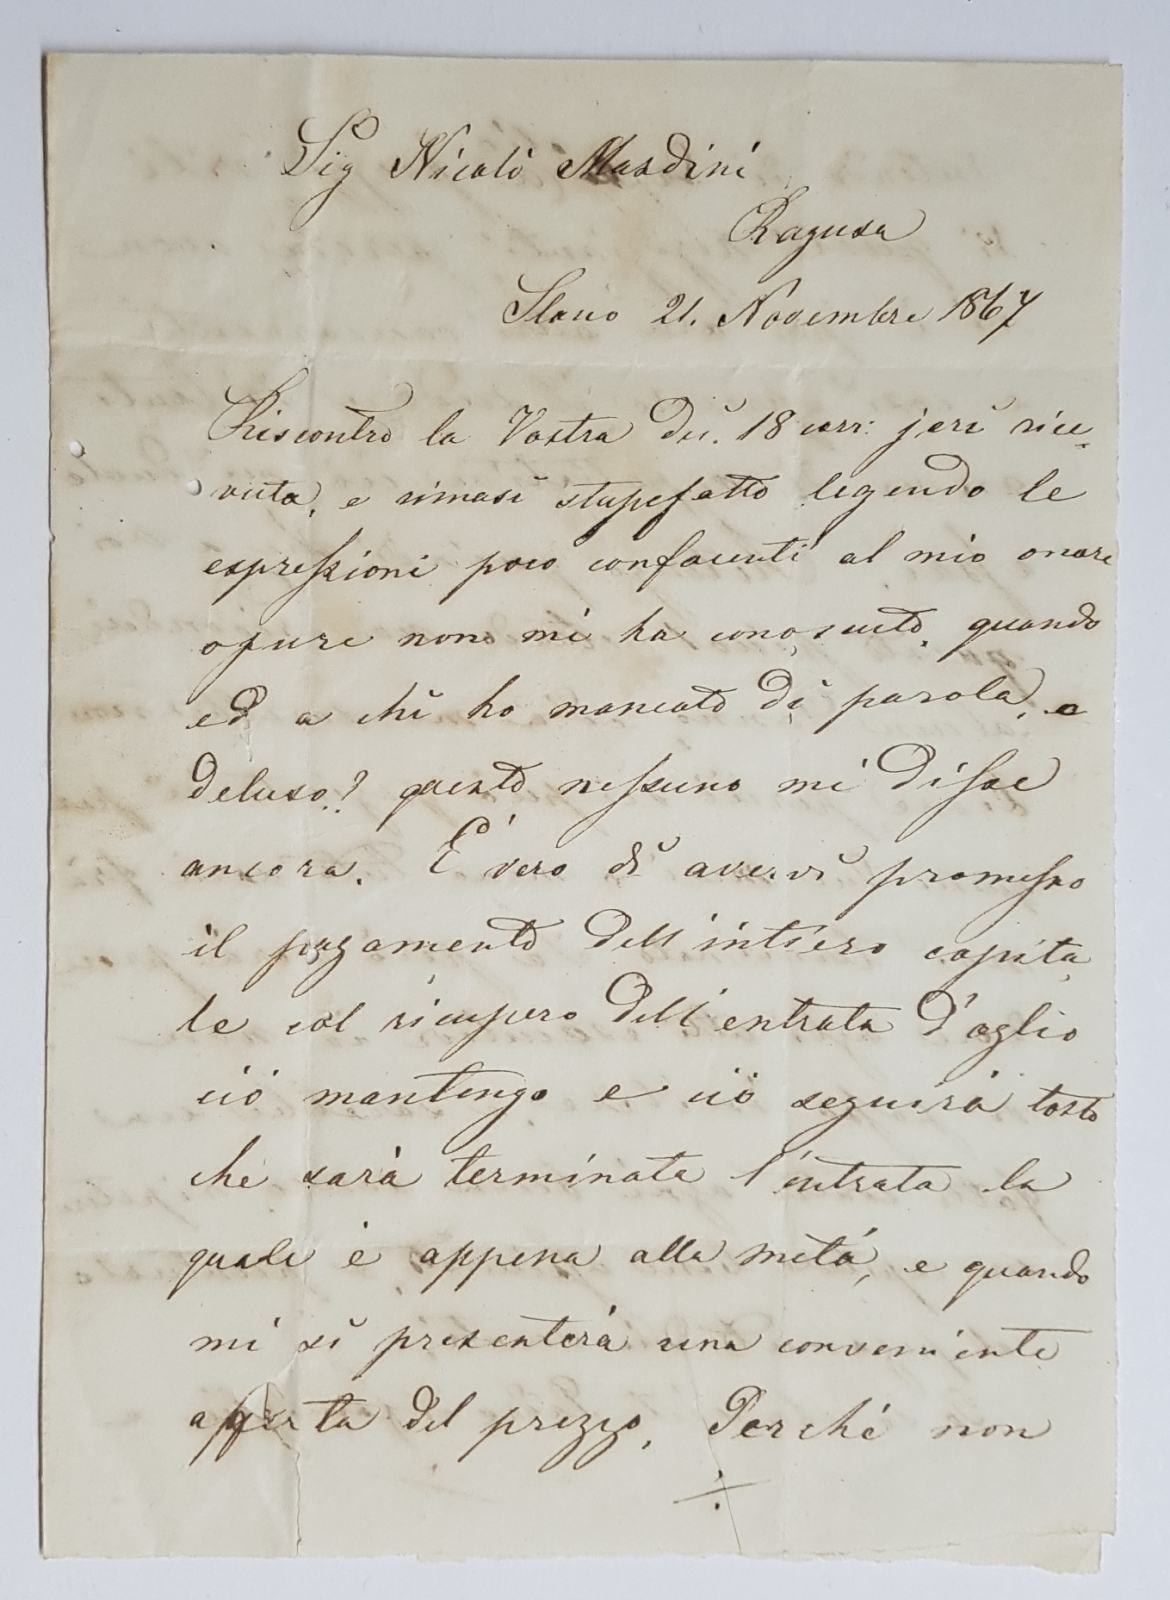 Sig Nicolò Mardini
Ragusa
Slano 21. Novembre 1867
Riscontro la Vostra dei. 18 corr: jeri rice-
vuta, e rimasi stupefatto legendo le
espressioni poco confacenti al mio onore
opure non mi ha conosciuto, quando
ed a chi ho mancato di parola, e
deluso? questo nessuno mi disse
ancora. É vero di avervi promesso
il pagamento dell'intiero capita
le col ricupero dell'entrata d'oglio
ció mantengo e ció seguirà tosto
che sarà terminata l'entrata la
quale è appena alla metá, e quando
mi si presenterà una conveniente
offerta del prezzo. Perché non